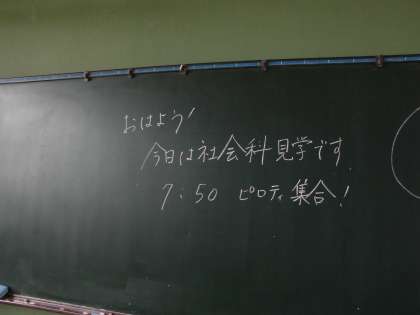 おはよう!
今日は社会科見学です
7:50 ピロティ集合!